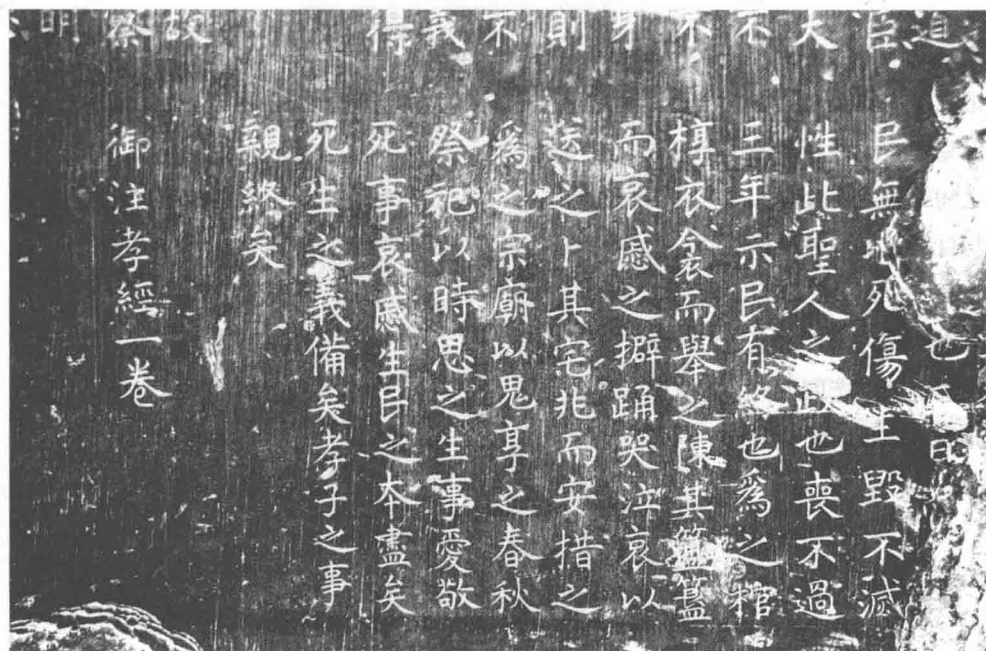 道
臣
大
不
不
身
則
不
義
得
故
祭
明
也
民無以死傷生毀不滅
性此聖人之政也喪不過
三年示民有終也爲之棺
椁衣衾而舉之陳其簠簋
而哀慼之擗踊哭泣哀以
送之卜其宅兆而安措之
爲之宗廟以鬼享之春秋
祭祀以時思之生事愛敬
死事哀慼生民之本盡矣
死生之義備矣孝子之事
親終矣
御注孝經一卷